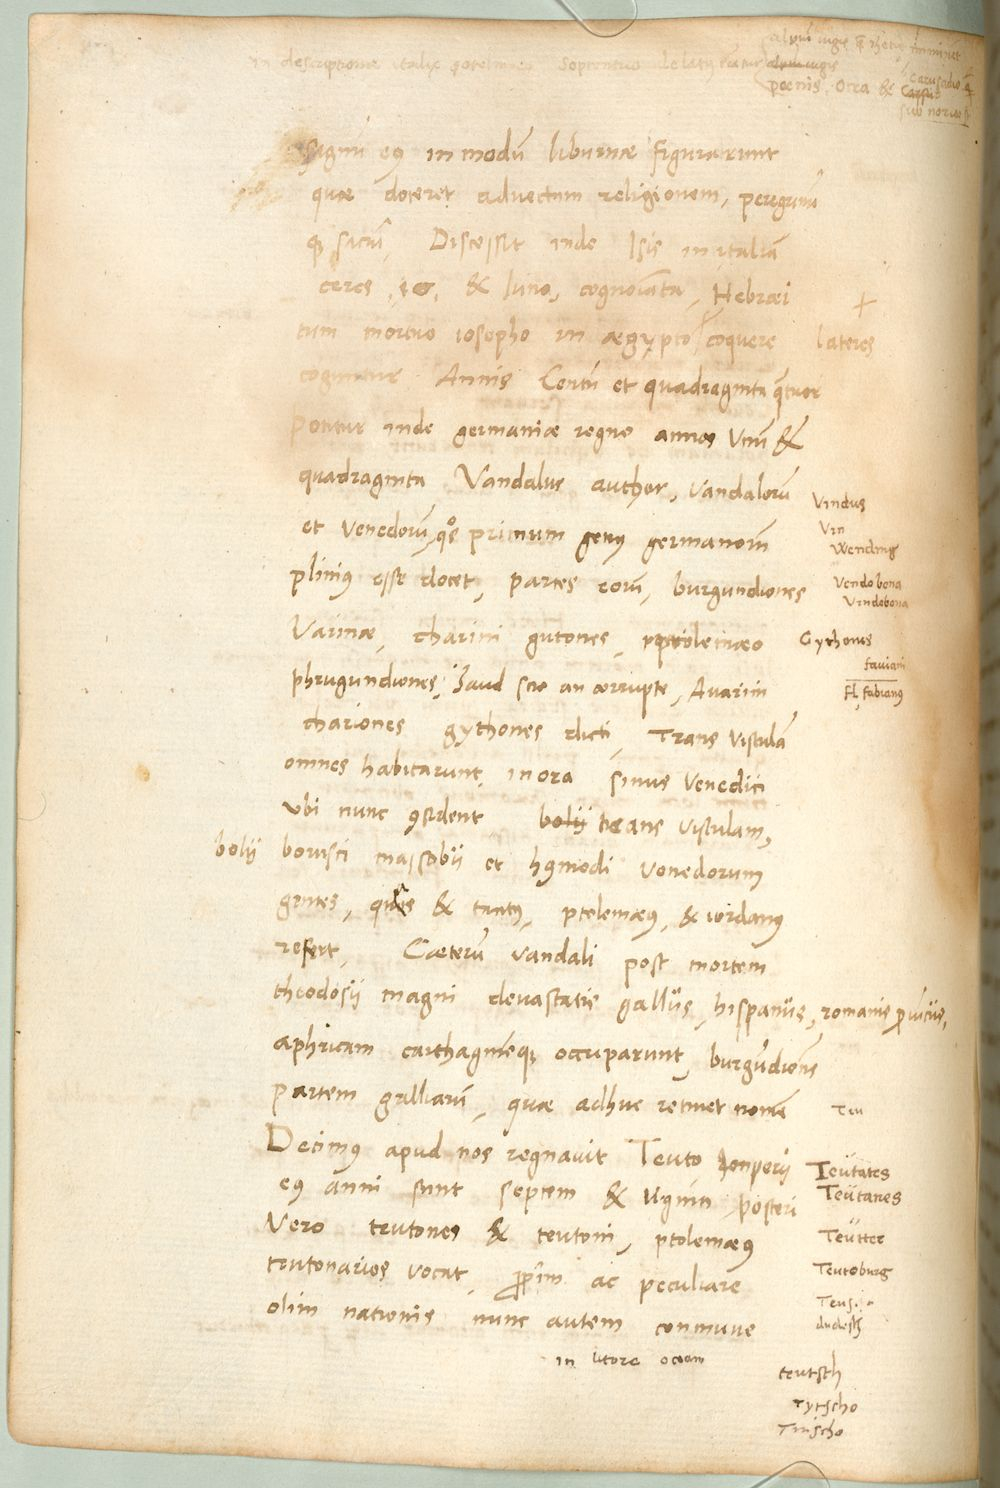 in descriptione italiæ
alpini iugis
poenis, Ocra &
sub norico
signũ eiꝰ in modũ liburnæ figurarunt
quæ doceret advectam religionem, peregrinã
qꝫ sacrũ, Discessit inde Isis in italiã
ceres, io, & Iuno, cognoĩata, Hebræi
tum mortuo iosopho in ægypto coquere lateres
coguntur Annis Centũ et quadraginta qͣtuor
Potitur inde germaniæ regno annos Unũ &
quadraginta Vandalus author, Vandalorũ
et Venedorũ, qͦs primum genꝰ germanorũ
pliniꝰ esse docet, partes eorũ, burgundiones
Varinæ, charini gutones, ptolemæo
phrugundiones, haud scio an corrupte, Auarini
chariones gythones dicti, Trans Vistulã
omnes habitarunt in ora sinus Venedici
Ubi nunc ꝯsident trans Vistulam,
bolij borusci massobij et hꝰmodi Venedorum
gentes, & tacitꝰ, ptolemæꝰ, & iordanꝰ
refert, Cæterũ vandali post mortem
theodosij magni devastatis gallijs, hispanijs, romanis ꝓvĩcijs,
aphricam carthaginẽqꝫ occuparunt, burgũdiões
partem galliarũ, quæ adhuc retinet nomẽ
Decimꝰ apud nos regnavit Teuto Imperij
eiꝰ anni sunt septem & Uigĩti posteri
Vero teutones & teutoni, ptolemæꝰ
teutonarios vocat, ꝓpriũ ac peculiare
olim nationis nunc autem commune
in litore oceani
Vindus
Vin
Wending
Vendobona
Vindobona
Gythones
faviani
fl, fabianꝰ
Teu
Teütates
Teütanes
Teütter
Teutoburg
teutsch
tytscho
Tuischo